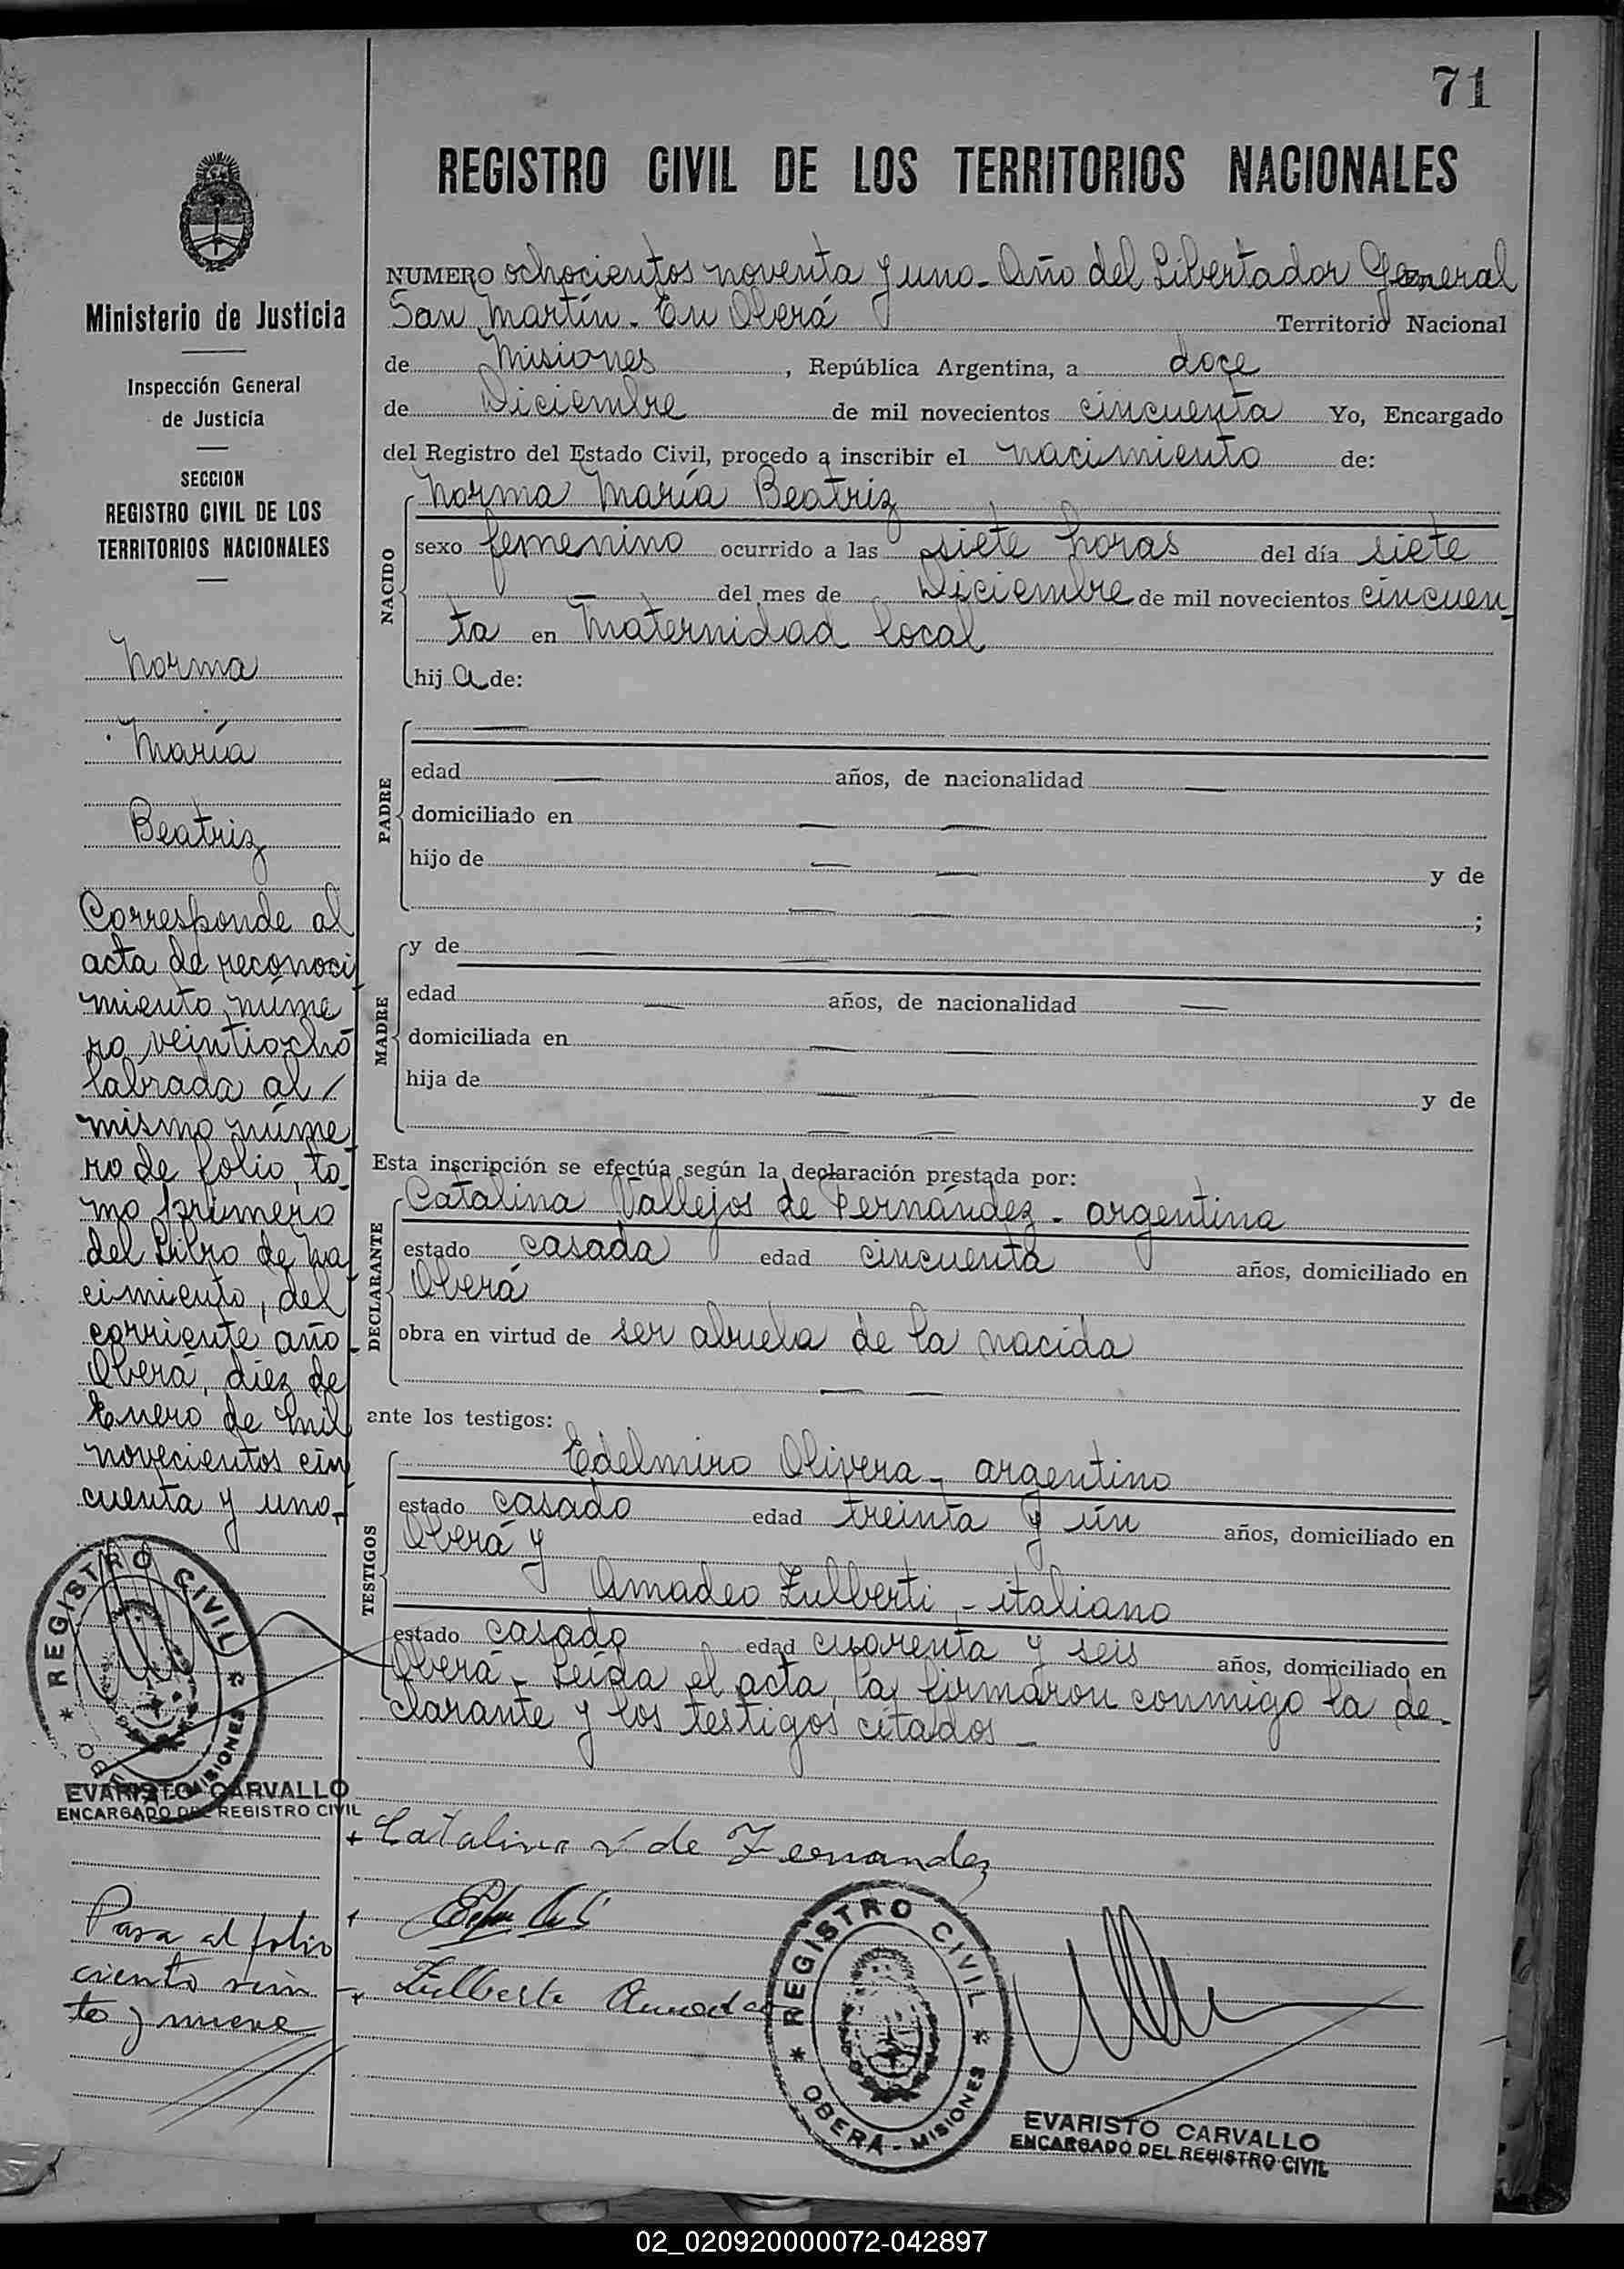 71
REGISTRO CIVIL DE LOS TERRITORIOS NACIONALES
Ministerio de Justicia
Inspección General
de Justicia
SECCION
REGISTRO CIVIL DE LOS
TERRITORIOS NACIONALES
Norma
María
Beatriz
Corresponde al
acta de reconoci
miento núme
ro veintiocho
labrada al
mismo núme
ro de folio, to-
mo primero
del Libro de Na
cimiento, del
corriente año.
Oberá, diez de
Enero de mil
novecientos cin
cuenta y uno.-
REGISTRO CIVIL
MISIONES
EVARISTO CARVALLO
ENCARGADO DEL REGISTRO CIVIL
Pasa al folio
ciento vein
te y nueve
NUMERO ochocientos noventa y uno- Año del Libertador General
San Martín. En Oberá Territorio Nacional
de Misiones, República Argentina, a doce
de Diciembre de mil novecientos cincuenta Yo, Encargado
del Registro del Estado Civil, procedo a inscribir el nacimiento de:
NACIDO
Norma María Beatriz
sexo femenino ocurrido a las siete horas del día siete
del mes de Diciembre de mil novecientos cincuen-
ta en Maternidad local
hij a de:
PADRE
edad — años, de nacionalidad —
domiciliado en — —
hijo de — — y de
— — ;
MADRE
y de — —
edad — años, de nacionalidad —
domiciliada en — —
hija de — — y de
— —
Esta inscripción se efectúa según la declaración prestada por:
DECLARANTE
Catalina Vallejos de Fernández - argentina
estado casada edad cincuenta años, domiciliado en
Oberá
obra en virtud de ser abuela de la nacida
— —
ante los testigos:
TESTIGOS
Edelmiro Olivera - argentino
estado casado edad treinta y ún años, domiciliado en
Oberá y
Amadeo Zulberti - italiano
estado casado edad cuarenta y seis años, domiciliado en
Oberá - Leída el acta, la firmaron conmigo la de-
clarante y los testigos citados -
+ Catalina V de Fernandez
+
+ Zulberti Amadeo
REGISTRO CIVIL
OBERÁ - MISIONES
EVARISTO CARVALLO
ENCARGADO DEL REGISTRO CIVIL
02_020920000072-042897